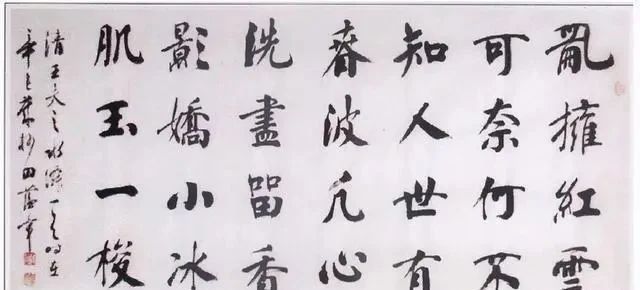 亂擁紅雲
可奈何不
知人世有
春波凡心
洗盡留香
影嬌小冰
肌玉一梭
清王夫之水僊一首時在
辛巳 田蘊章